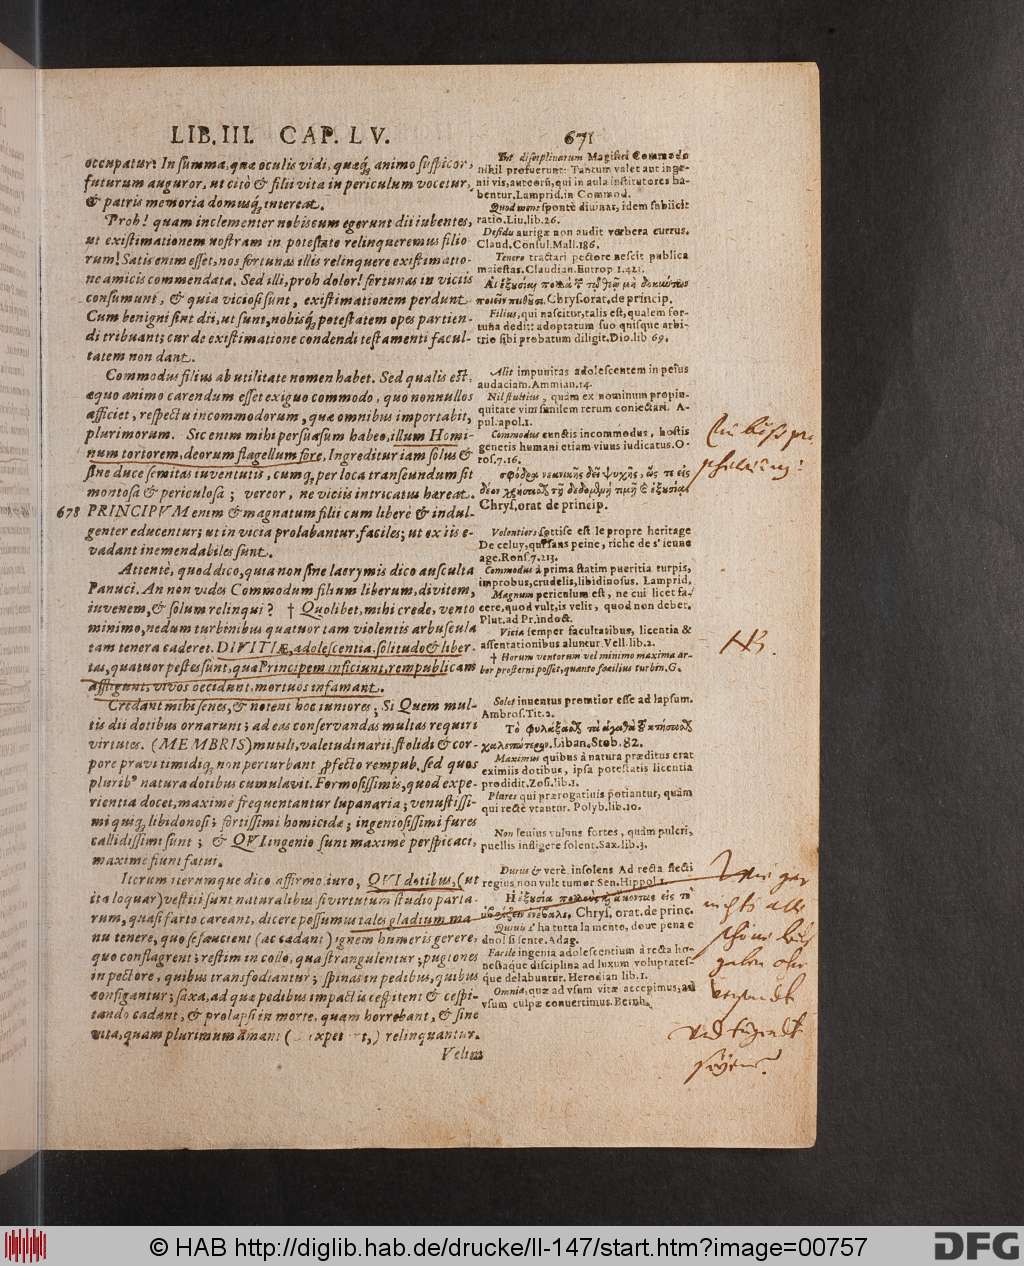 LIB. III. CAP. LV. 671
occupatur: In summa, quæ oculis vidi, quæq́; animo suspicor,
futurum auguror, ut citò & filii vita in periculum vocetur,
& patris memoria domuiq́; intereat.
Proh! quam inclementer nobiscum egerunt dii iubentes,
ut existimationem nostram in potestate relinqueremus filio
rum! Satis enim esset, nos fortunas illis relinquere existimatio-
ne amicis commendata. Sed illi, proh dolor! fortunas in vitiis
consumunt, & quia vitiosi sunt, existimationem perdunt.
Cum benigni sint dii, ut sunt, nobisq́; potestatem opes partien-
di tribuant; cur de existimatione condendi testamenti facul-
tatem non dant.
Commodus filius ab utilitate nomen habet. Sed qualis est,
æquo animo carendum esset exiguo commodo, quo nonnullos
afficiet, respectu incommodorum, quæ omnibus importabit,
plurimorum. Sic enim mihi persuasum habeo, illum Homi-
num tortorem, deorum flagellum fore. Ingreditur iam solus &
sine duce semitas iuventutis, cumq́; per loca transeundum sit
montosa & periculosa; vereor, ne vitiis intricatus hæreat.
678 PRINCIPVM enim & magnatum filii cum liberè & indul-
genter educentur; ut in vicia prolabantur, faciles; ut ex iis e-
vadant inemendabiles sunt.
Attentè, quod dico, quia non sine lacrymis dico ausculta
Panuci. An non vides Commodum filium liberum, divitem,
iuvenem, & solum relinqui? † Quolibet, mihi crede, vento
minimo, nedum turbinibus quatuor tam violentis arbuscula
tam tenera caderet. DIVITIÆ, adolescentia, solitudo & liber-
tas, quatuor pestes sunt, quæ Principem inficiunt, rempublicam
affligunt, vivos occidunt, mortuos infamant.
Credant mihi senes, & notent hoc iuniores; Si Quem mul-
tis dii dotibus ornarunt; ad eas conservandas multas requiri
virtutes. (MEMBRIS) mutili, valetudinarii, stolidi & cor-
pore pravi timidiq́; non perturbant pfecto rempub. sed quos
pluribᵒ natura dotibus cumulavit. Formosissimis, quod expe-
rientia docet, maxime frequentantur lupanaria; venustissi-
mi quiq́; libidonosi; fortissimi homicidæ; ingeniosissimi fures
callidissimi sunt; & QVI ingenio sunt maxime perspicaci,
maxime fiunt fatui.
Iterum iterumque dico affirmo, iuro, QVI dotibus, (ut
ita loquar) vestiti sunt naturalibus si virtutum studio parta-
rum, quasi farto careant, dicere possumus tales gladium ma-
nu tenere, quo se saucient (ac cadant) ignem humeris gerere,
quo conflagrent; restim in collo, qua strangulentur; pugiones
in pectore, quibus transfodiantur; spinas in pedibus, quibus
configantur; saxa, ad quæ pedibus impactis cespitent & cespi-
tando cadant, & prolapsi in morte, quam horrebant, & sine
vita, quam plurimum amant relinquantur.
Velim
Tot disciplinarum Magistri Commodo
nihil profuerunt: Tantum valet aut inge-
nii vis, aut eorū, qui in aula institutores ha-
bentur. Lamprid. in Commod.
Quod mens spontè divinat, idem subiicit
ratio. Liu. lib. 26.
Desidis aurigæ non audit verbera currus.
Claud. Consul. Mall. 186.
Tenero tractari pectore nescit publica
maiestas. Claudian. Eutrop 1.421.
Chrys. orat. de princip.
Filius, qui nascitur, talis est, qualem for-
tuna dedit: adoptatum suo quisque arbi-
trio sibi probatum diligit. Dio. lib 69.
Alit impunitas adolescentem in peius
audaciam. Ammian. 14.
Nil stultius, quàm ex nominum propin-
quitate vim similem rerum coniectari. A-
pul. apol. 1.
Commodus cunctis incommodus, hostis
generis humani etiam viuus iudicatus. O-
ros. 7. 16.
Chrys. orat de princip.
Volontiers sottise est le propre heritage
De celuy, qui sans peine, riche de s' ieune
age. Rons. 7. 213.
Commodus à prima statim pueritia turpis,
improbus, crudelis, libidinosus. Lamprid,
Magnum periculum est, ne cui licet fa-
cere, quod vult, is velit, quod non debet.
Plut. ad Pr. indoct.
Vicia semper facultatibus, licentia &
assentationibus aluntur. Vell. lib. 2.
† Horum ventorum vel minimo maxima ar-
bor prosterni posset, quanto facilius turbin. G.
Solet inuentus promtior esse ad lapsum.
Ambros. Tit. 2.
Liban. Stob. 82.
Maximus quibus à natura præditus erat
eximiis dotibus, ipsa potestatis licentia
prodidit. Zosi. lib. 1.
Plures qui prærogatiuis potiantur, quàm
qui rectè vtantur. Polyb. lib. 10.
Non seuius vulnus fortes, quàm pulcri,
puellis infligere solent. Sax. lib. 3.
Durus & verè insolens Ad recta flecti
regius non vult tumor Sen. Hippol.
Chrys. orat. de princ.
ha tutta la mente, doue pena e
duol si sente. Adag.
Facile ingenia adolescentium à recta ho-
nestaque disciplina ad luxum voluptates-
que delabuntur. Herodian lib. 1.
Omnia, quæ ad vsum vitæ accepimus, ad
vsum culpæ conuertimus. Bernh.
NB.
© HAB http://diglib.hab.de/drucke/ll-147/start.htm?image=00757
DFG